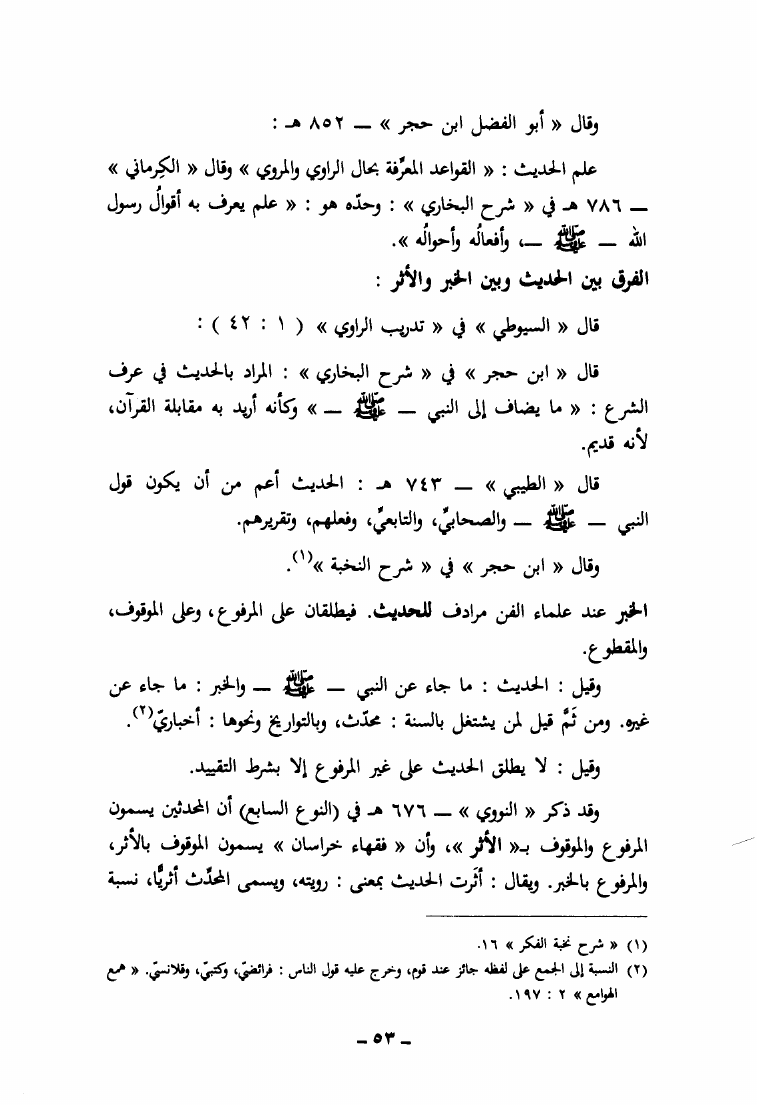 وقال « أبو الفضل ابن حجر » — ٨٥٢ هـ :
علم الحديث : « القواعد المعرِّفة بحال الراوي والمروي » وقال « الكِرماني »
— ٧٨٦ هـ في « شرح البخاري » : وحدّه هو : « علم يعرف به أقوالُ رسول
الله — ﷺ —، وأفعالُه وأحوالُه ».
الفرق بين الحديث وبين الخبر والأثر :
قال « السيوطي » في « تدريب الراوي » ( ١ : ٤٢ ) :
قال « ابن حجر » في « شرح البخاري » : المراد بالحديث في عرف
الشرع : « ما يضاف إلى النبي — ﷺ — » وكأنه أريد به مقابلة القرآن،
لأنه قديم.
قال « الطيبي » — ٧٤٣ هـ : الحديث أعم من أن يكون قول
النبي — ﷺ — والصحابيِّ، والتابعيِّ، وفعلهم، وتقريرهم.
وقال « ابن حجر » في « شرح النخبة »(١).
الخبر عند علماء الفن مرادف للحديث. فيطلقان على المرفوع، وعلى الموقوف،
والمقطوع.
وقيل : الحديث : ما جاء عن النبي — ﷺ — والخبر : ما جاء عن
غيره. ومن ثَمَّ قيل لمن يشتغل بالسنة : محدّث، وبالتواريخ ونحوها : أخباريّ(٢).
وقيل : لا يطلق الحديث على غير المرفوع إلا بشرط التقييد.
وقد ذكر « النووي » — ٦٧٦ هـ في (النوع السابع) أن المحدثين يسمون
المرفوع والموقوف بـ« الأثر »، وأن « فقهاء خراسان » يسمون الموقوف بالأثر،
والمرفوع بالخبر. ويقال : أثَرت الحديث بمعنى : رويته، ويسمى المحدِّث أثريًّا، نسبة
(١) « شرح نخبة الفكر » ١٦.
(٢) النسبة إلى الجمع على لفظه جائز عند قوم، وخرج عليه قول الناس : فرائضيّ، وكتبيّ، وقلانسيّ. « همع
الهوامع » ٢ : ١٩٧.
ـ ٥٣ ـ